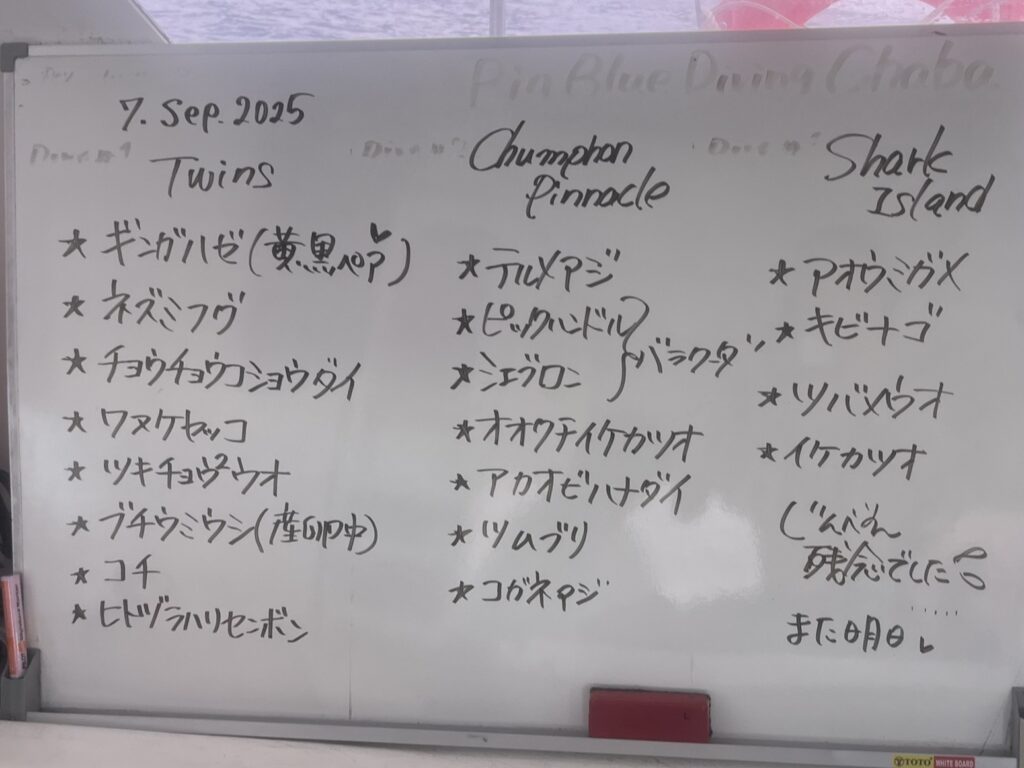 Pin Blue Diving Chaba
7. Sep. 2025
Twins
★ ギンガハゼ(黄、黒ペア)
★ ネズミフグ
★ チョウチョウコショウダイ
★ ワヌケヤッコ
★ ツキチョウチョウウオ
★ ブチウミウシ(産卵中)
★ コチ
★ ヒトヅラハリセンボン
Chumphon
Pinnacle
★ テルメアジ
★ ピックハンドル
★ シェブロン
バラクーダ
★ オオクチイケカツオ
★ アカオビハナダイ
★ ツムブリ
★ コガネアジ
Shark
Island
★ アオウミガメ
★ キビナゴ
★ ツバメウオ
★ イケカツオ
じんべえさん
残念でした
.....
また明日
TOTO WHITE BOARD